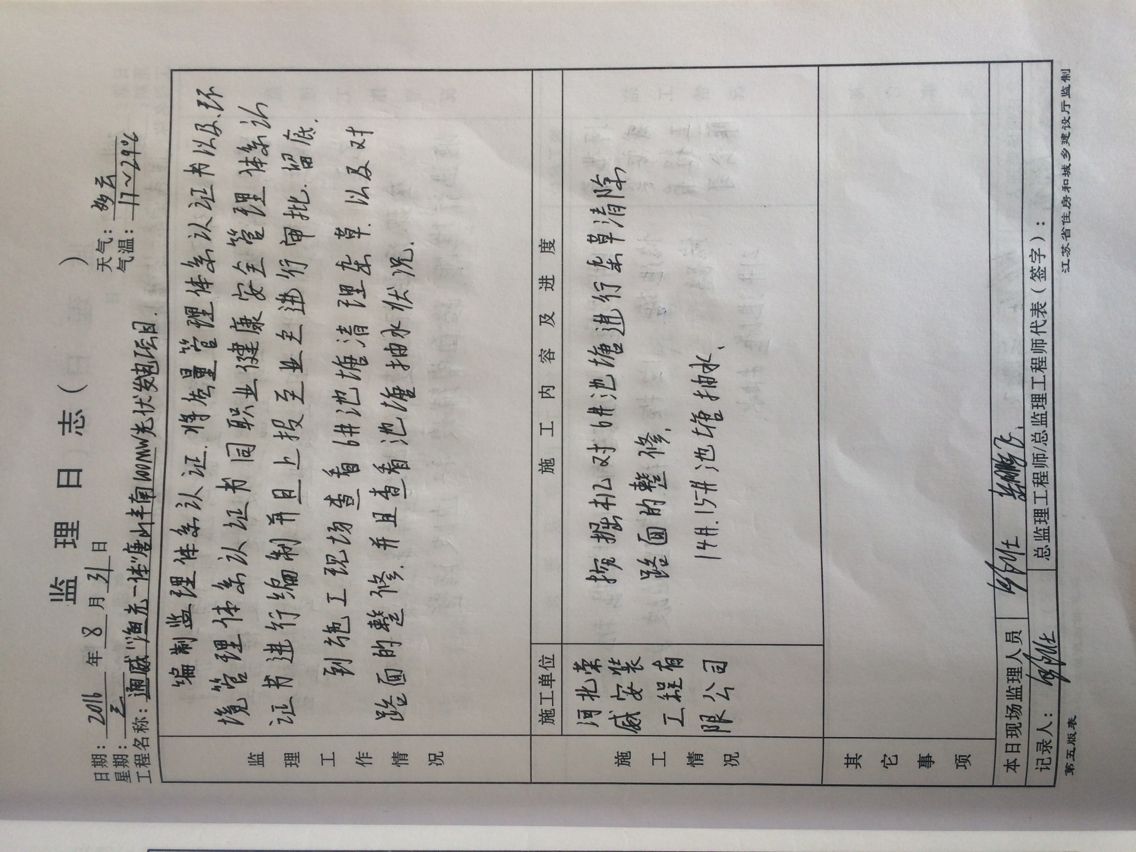 监理日志（    ）
日期：2016年8月31日 天气：多云
星期：三 气温：17~29℃
工程名称：通威"渔光一体"唐山丰南100MW光伏发电项目.
监理工作情况
编制监理体系认证.将质量管理体系认证书以及环
境管理体系认证书同职业健康安全管理体系认
证书进行编制并且上投至业主进行审批.留底.
到施工现场查看6#池塘清理杂草.以及对
路面的整修.并且查看池塘抽水状况.
施工单位 施工内容及进度
施工情况
河北荣
威安装
工程有
限公司
挖掘机对6#池塘进行杂草清除
路面的整修.
14#.15#池塘抽水、
其它事项
本日现场监理人员
记录人： 总监理工程师/总监理工程师代表（签字）：
第五版表 江苏省住房和城乡建设厅监制